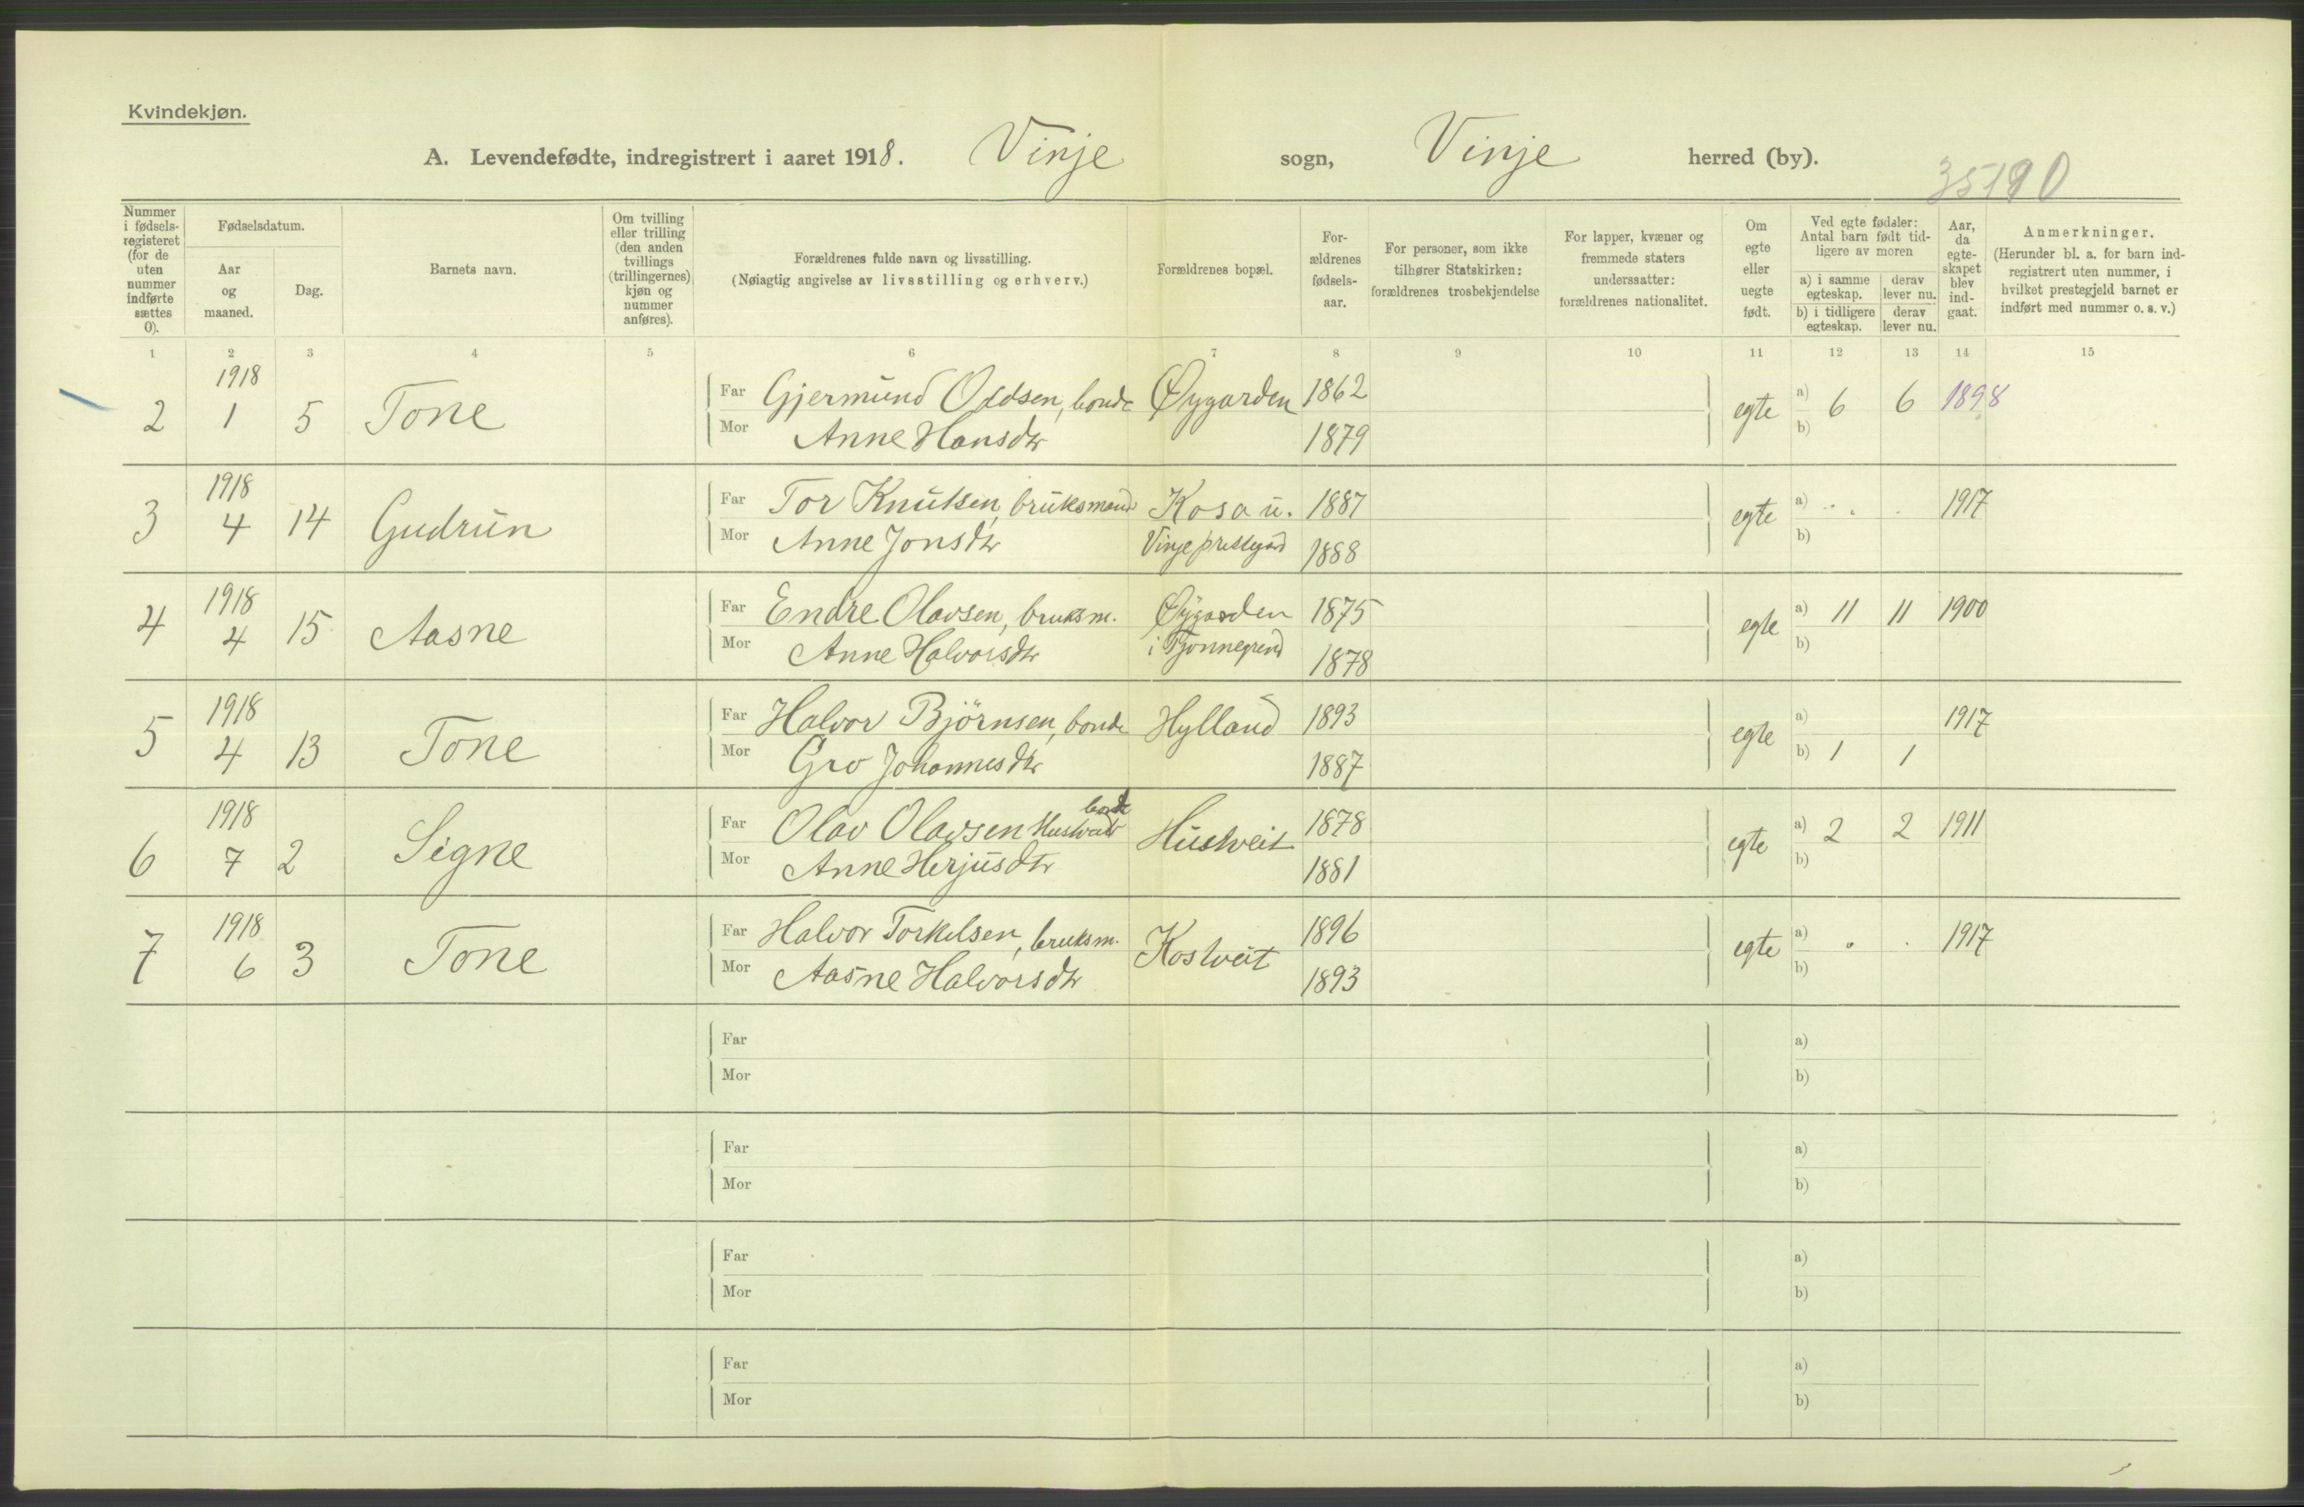 Kvindekjøn.
A. Levendefødte, indregistrert i aaret 1918. Vinje sogn, Vinje herred (by).
Nummer i fødselsregisteret (for de uten nummer indførte sættes 0).
Fødselsdatum.
Aar og maaned.
Dag.
Barnets navn.
Om tvilling eller trilling (den anden tvillings (trillingernes) kjøn og nummer anføres).
Forældrenes fulde navn og livsstilling.
(Nøiagtig angivelse av livsstilling og erhverv.)
Forældrenes bopæl.
Forældrenes fødselsaar.
For personer, som ikke tilhører Statskirken: forældrenes trosbekjendelse
For lapper, kvæner og fremmede staters underssatter: forældrenes nationalitet.
Om egte eller uegte født.
Ved egte fødsler: Antal barn født tidligere av moren
a) i samme egteskap.
derav lever nu.
b) i tidligere egteskap.
derav lever nu.
Aar, da egteskapet blev indgaat.
Anmerkninger.
(Herunder bl. a. for barn indregistrert uten nummer, i hvilket prestegjeld barnet er indført med nummer o. s. v.)
1 2 3 4 5 6 7 8 9 10 11 12 13 14 15
2 1918 1 5 Tone
Far Gjermund Oddsen, bonde Øygarden 1862 egte a) 6 6 1898
Mor Anne Hansdtr 1879 b)
3 1918 4 14 Gudrun
Far Tor Knutsen, bruksmand Kosa u. 1887 egte a) 1917
Mor Anne Jonsdtr Vinje prestegård 1888 b)
4 1918 4 15 Aasne
Far Endre Olavsen, bruksm. Øygarden 1875 egte a) 11 11 1900
Mor Anne Halvorsdtr i 1878 b)
5 1918 4 13 Tone
Far Halvor Björnsen, bonde Hylland 1893 egte a) 1917
Mor Gro Johannesdtr 1887 b) 1 1
6 1918 7 2 Signe
Far Olav Olavsen Hustveit bonde Hustveit 1878 egte a) 2 2 1911
Mor Anne Herjusdtr 1881 b)
7 1918 6 3 Tone
Far Halvor Torkelsen, bruksm. Kostveit 1896 egte a) 1917
Mor Aasne Halvorsdtr 1893 b)
Far a)
Mor b)
Far a)
Mor b)
Far a)
Mor b)
Far a)
Mor b)